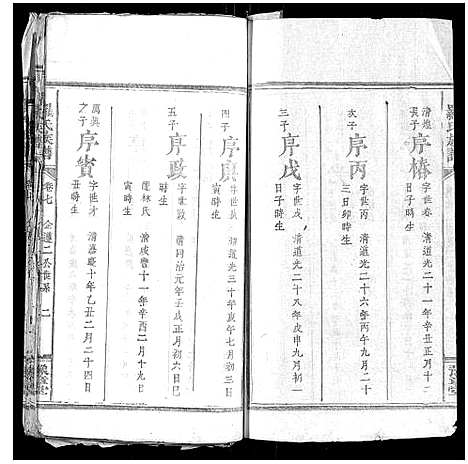 羅氏族譜
清煌
之子
序椿
字世春 清道光二十一年辛丑正月十二日子時生
次子
序丙
字世丙 清道光二十六年丙午九月二十三日卯時生
三子
序戊
字世戊 清道光二十八年戊申九月初一日子時生
四子
清道光三十年庚戌午七月初三日寅時生
五子
序政
字世政 清同治元年壬戌正月初六日巳時生
陳林氏 清咸豐十一年辛酉二月十九日寅時生
之子
序賓
字世才 清嘉慶十年乙丑二月二十四日丑時生
氏族譜
卷七
二